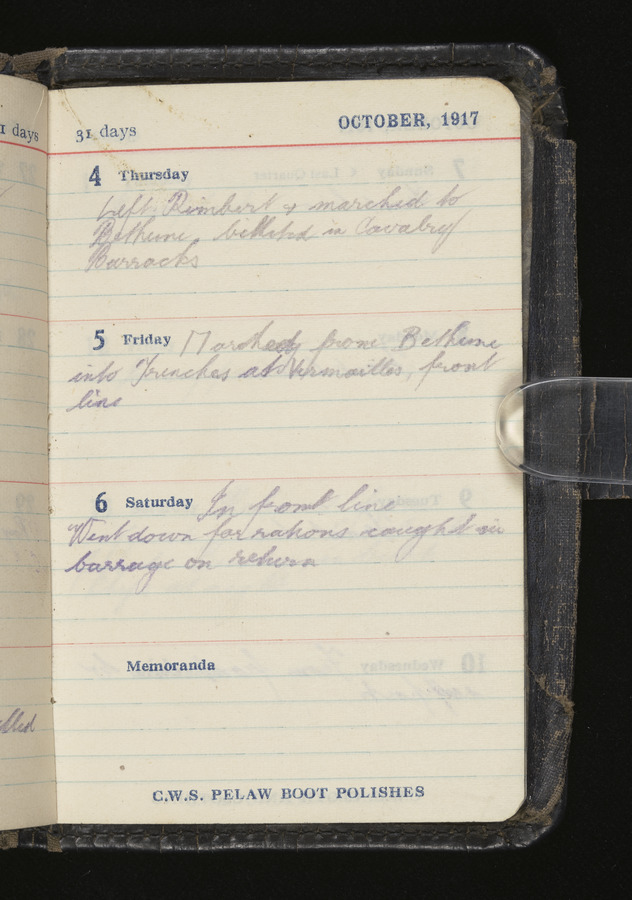 1 days
31 days
OCTOBER, 1917
4 Thursday
Left Rimbert & marched to
Betheune billeted in Cavalry
Barracks
5 Friday Marched from Betheune
into Trenches at Vermailles, front
line
6 Saturday In front line
Went down for rations caught in
barrage on return
Memoranda
C.W.S. PELAW BOOT POLISHES